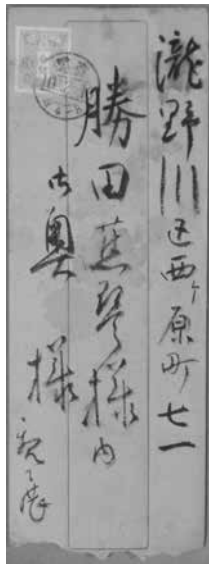 瀧野川区西ヶ原町七一
勝田蕉琴様内
御奥様
親展